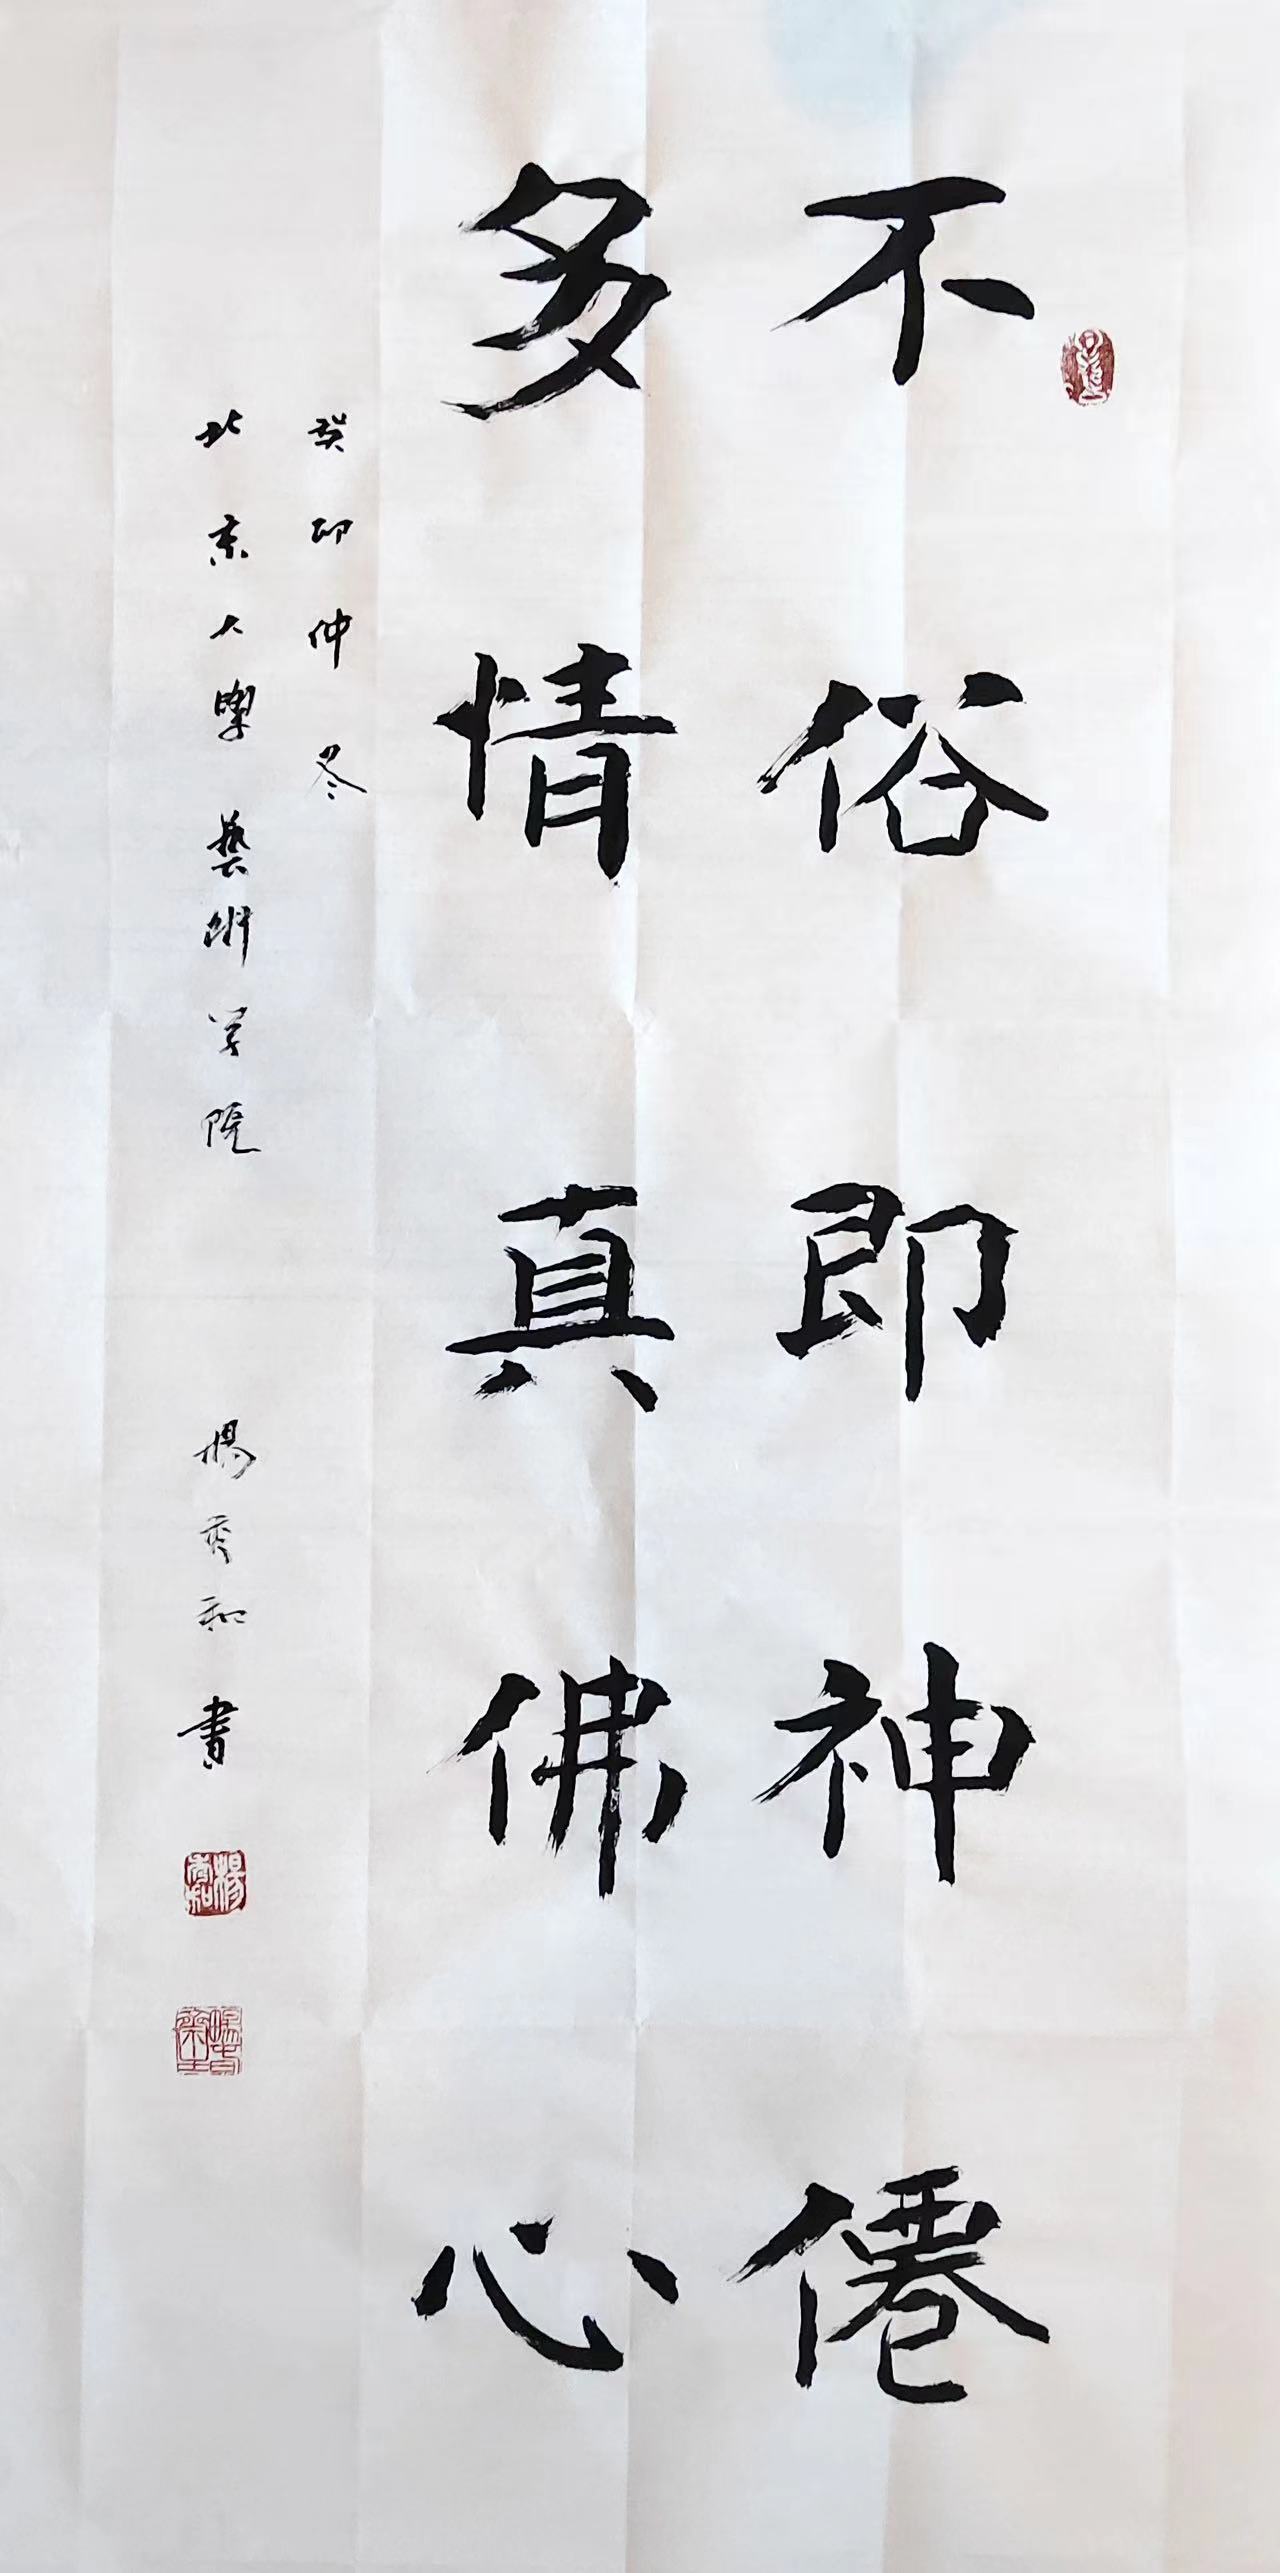 不俗即神僊
多情真佛心
癸卯仲冬
北京大學藝術学院
楊秀和書